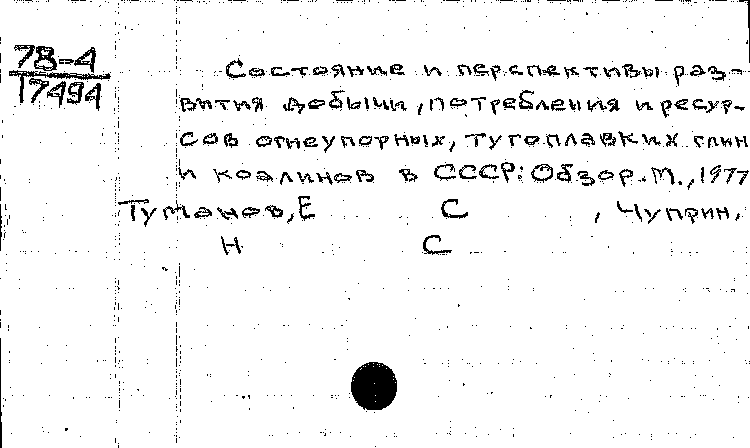 78-4
17494
Состояние и перспективы раз-
вития добычи, потребления и ресур-
сов огнеупорных, тугоплавких глин
и коалинов в СССР: Обзор. М., 1977
Туманов, Е С , Чуприн,
Н С